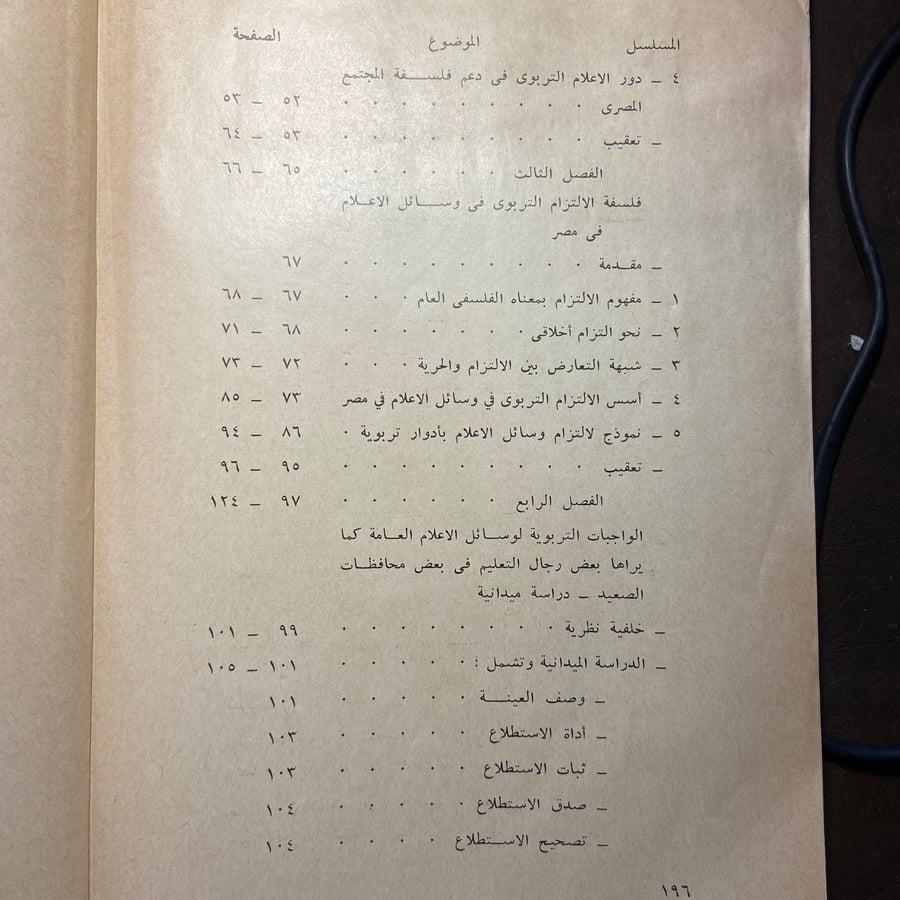 المسلسل الموضوع الصفحة
٤ ــ دور الاعلام التربوى فى دعم فلسـفة المجتمع
المصرى . . . . . . . . . ٥٢ ــ ٥٣
ــ تعقيب . . . . . . . . . ٥٣ ــ ٦٤
الفصل الثالث . . . . . . ٦٥ ــ ٦٦
فلسفة الالتزام التربوى فى وسـائل الاعـلام
فى مصر
ــ مقـدمة . . . . . . . . . ٦٧
١ ــ مفهوم الالتزام بمعناه الفلسفى العام . . . ٦٧ ــ ٦٨
٢ ــ نحو التزام أخلاقى . . . . . . . ٦٨ ــ ٧١
٣ ــ شبهة التعارض بين الالتزام والحرية . . . ٧٢ ــ ٧٣
٤ ــ أسس الالتزام التربوى في وسائل الاعلام في مصر ٧٣ ــ ٨٥
٥ ــ نموذج لالتزام وسائل الاعلام بأدوار تربوية . ٨٦ ــ ٩٤
ــ تعقيب . . . . . . . . . ٩٥ ــ ٩٦
الفصل الرابع . . . . . . ٩٧ ــ ١٢٤
الواجبات التربوية لوسـائل الاعلام العـامة كما
يراها بعض رجال التعليم فى بعض محافظـات
الصعيد ــ دراسة ميدانية
ــ خلفية نظرية . . . . . . . . ٩٩ ــ ١٠١
ــ الدراسة الميدانية وتشمل : . . . . . ١٠١ ــ ١٠٥
ــ وصف العينـــة . . . . . ١٠١
ــ أداة الاستطلاع . . . . . ١٠٣
ــ ثبات الاستطلاع . . . . . ١٠٣
ــ صدق الاستطلاع . . . . . ١٠٤
ــ تصحيح الاسـتطلاع . . . . ١٠٤
١٩٦